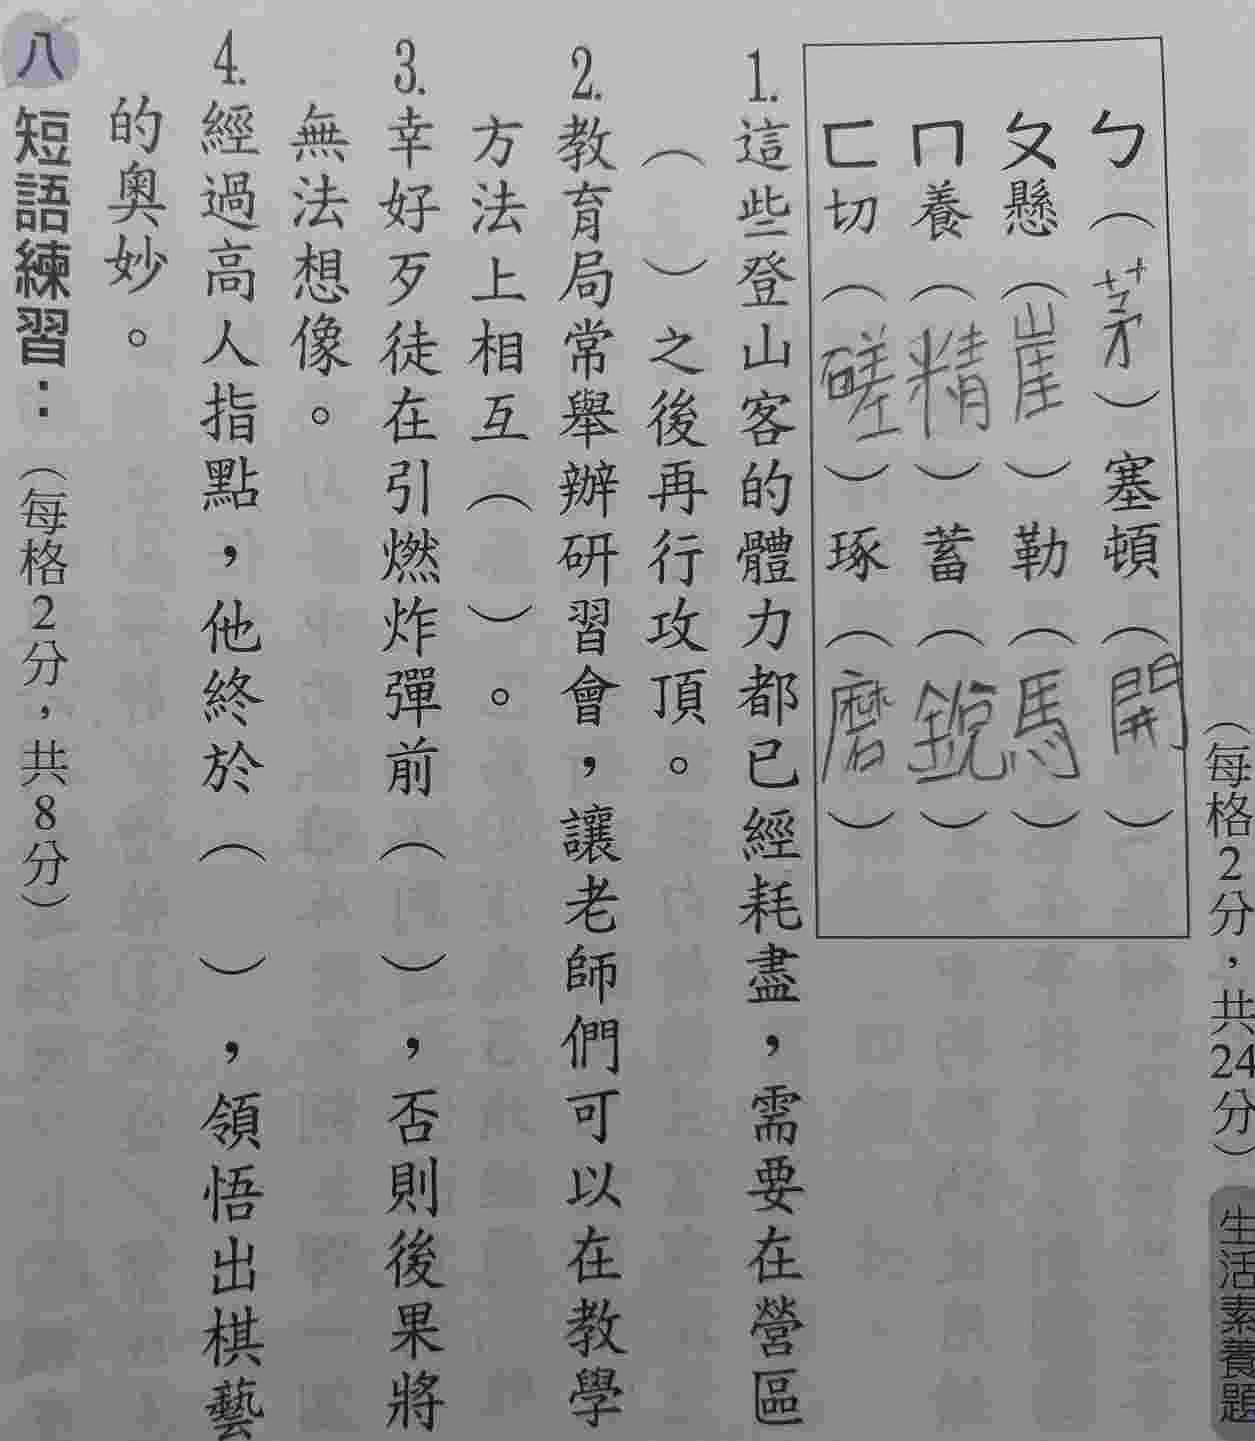 （每格2分，共24分）
生活素養題
ㄅ（茅）塞頓（開）
ㄆ懸（崖）勒（馬）
ㄇ養（精）蓄（銳）
ㄈ切（磋）琢（磨）
1.這些登山客的體力都已經耗盡，需要在營區
（　）之後再行攻頂。
2.教育局常舉辦研習會，讓老師們可以在教學
方法上相互（　）。
3.幸好歹徒在引燃炸彈前（　），否則後果將
無法想像。
4.經過高人指點，他終於（　），領悟出棋藝
的奧妙。
八 短語練習：（每格2分，共8分）